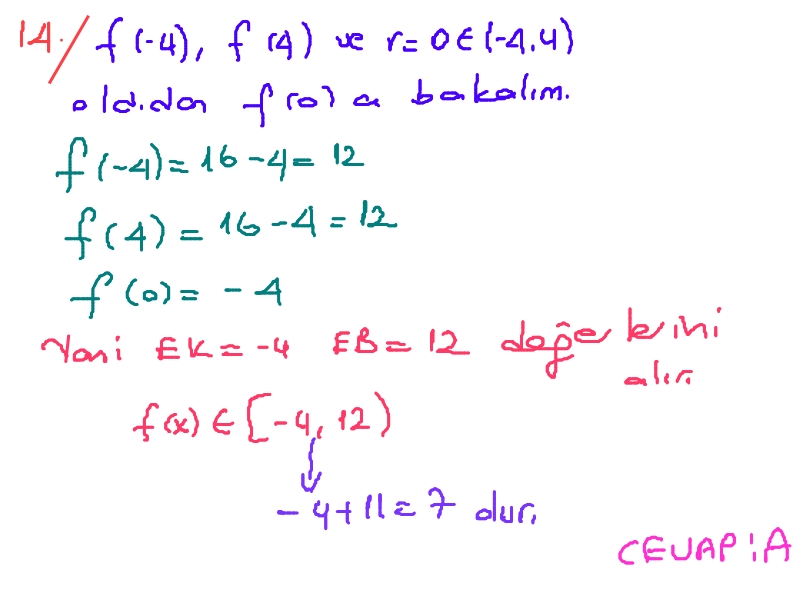 14./ f(-4), f(4) ve r=0∈(-4,4)
old.dan f(0) a bakalım.
f(-4)=16-4=12
f(4)=16-4=12
f(0)=-4
Yani EK=-4 EB=12 değerlerini
alır.
f(x)∈[-4,12)
-4+11=7 dur.
CEVAP:A